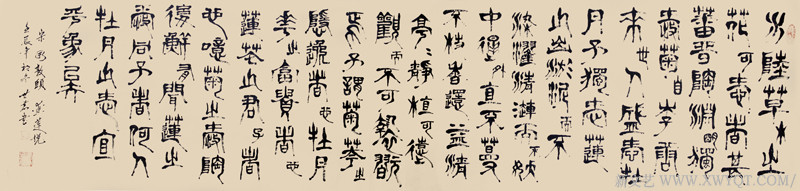 水陸草木之
花可愛者甚
蕃晉陶淵明獨
愛菊自李唐
来世人盛愛牡
丹予獨愛蓮
之出淤泥而不
染濯清漣而不妖
中通外直不蔓
不枝香遠益清
亭亭靜植可遠
觀而不可褻翫
焉予謂菊華之
隱逸者也牡丹
華之富貴者也
蓮華之君子者
也噫菊之愛陶
後鮮有聞蓮之
愛同予者何人
牡丹之愛宜
乎眾矣
宋周敦頤愛蓮說
壬辰年